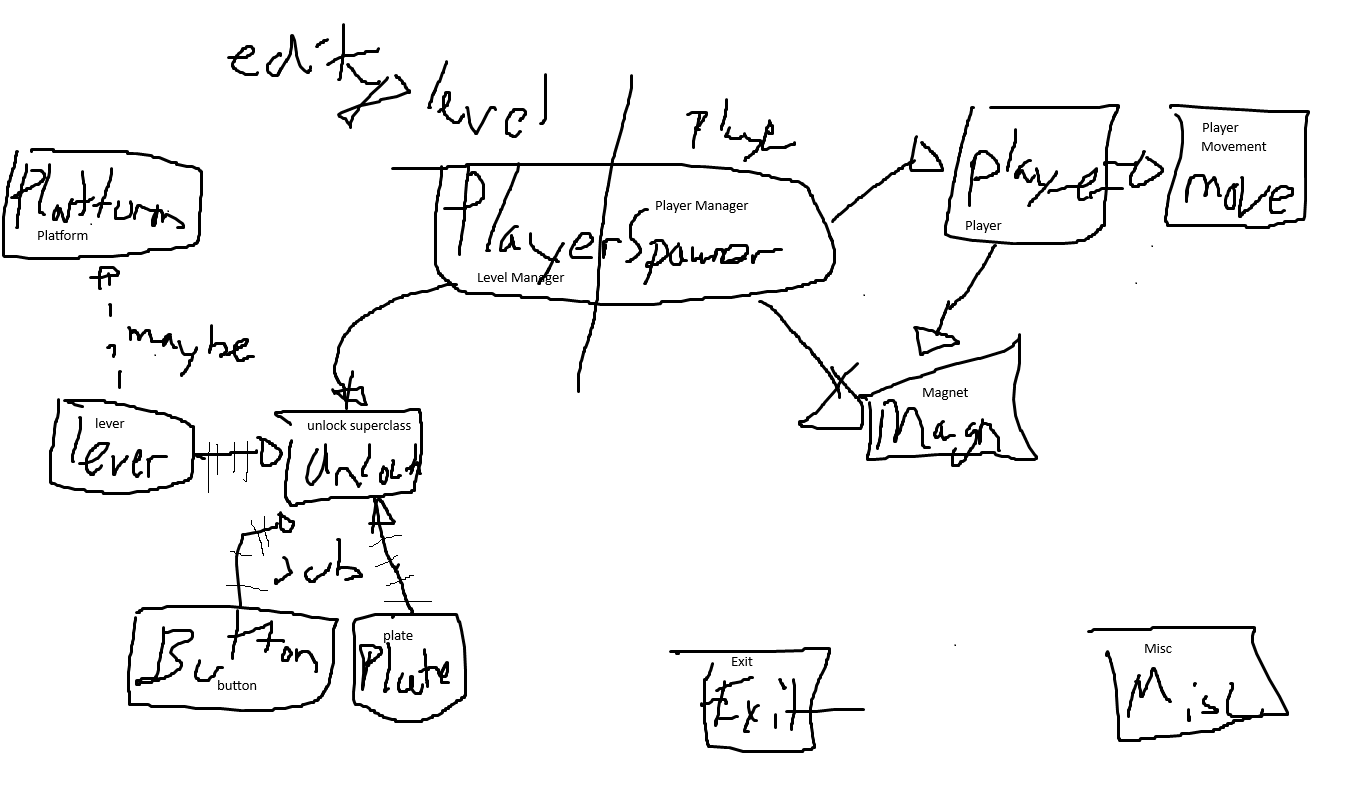 edit
level
Player
Platform
Platform
PlayerSpawner
Player Manager
Level Manager
Player
Player
Player
Movement
move
maybe
lever
lever
unlock superclass
Unlock
Magnet
Magn
sub
Button
button
plate
Plate
Exit
Exit
Misc
Misc